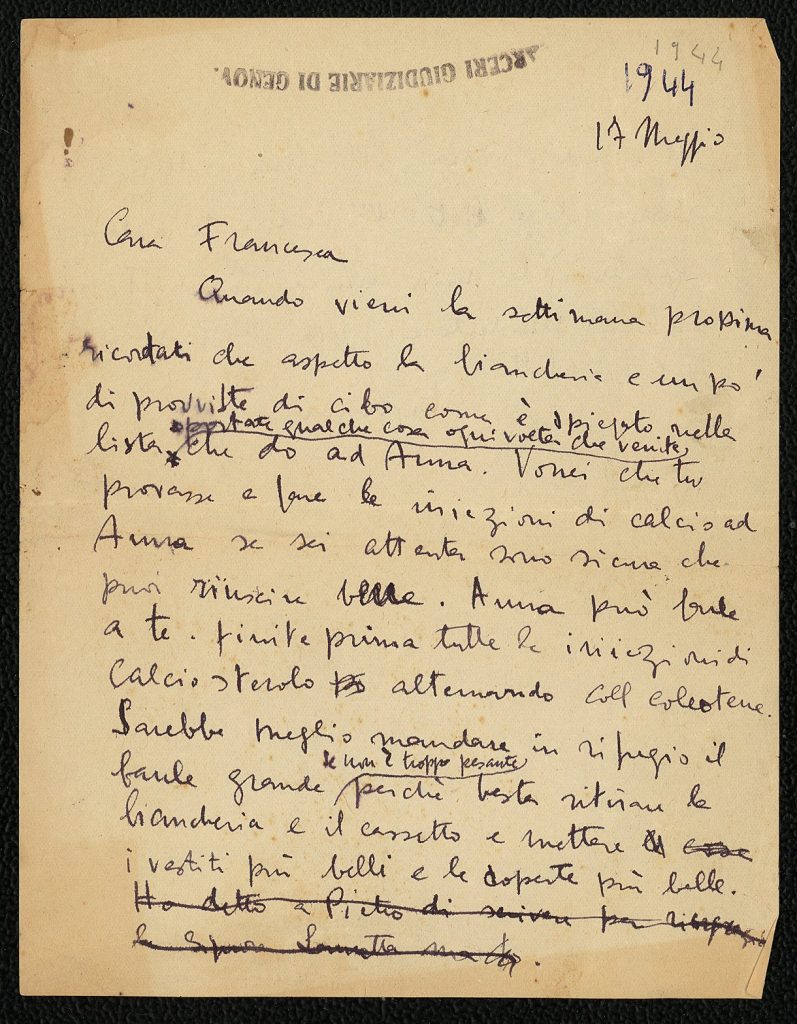 ARCERI GIUDIZIARIE DI GENOV
1944
1944
17 Maggio
Cara Francesca
Quando vieni la settimana prossima
ricordati che aspetto la biancheria e un po'
di provviste di cibo come è spiegato nella
portate qualche cosa ogni volta che venite
lista che do ad Anna. Vorrei che tu
provasse a fare le iniezioni di calcio ad
Anna se sei attenta sono sicura che
puoi riuscire bene. Anna può farle
a te. finite prima tutte le iniezioni di
Calciosterolo alternando coll
Sarebbe meglio mandare in rifugio il
se non è troppo pesante
baule grande perchè basta ritirare la
biancheria e il cassetto e mettere
i vestiti più belli e le coperte più belle.
Ho detto a Pietro di scrivere per
la Signora ma